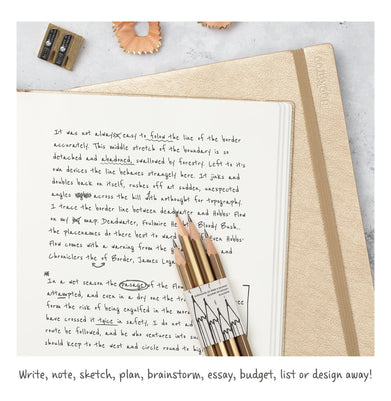 It was not always easy to folow the line of the border
accurately. This middle stretch of the boundary is so
detached and abadoned, swallowed by forestry. Left to it's
own devices the line behaves strangely here. It jinks and
doubles back on itself, rushes off at sudden, unexpected
angles across the hill with nothought for topography.
I trace the border line between deadwater and Hobbs' Flow
on my map. Deadwater, Foulmire He Bloody Bush..
the placenames do there best to ward Hobbs'
Flow comes with a warning from the
Chroniclers the of Border, James Loga
In a wet season the passage of the Flow
attampted, and even in a dry one the tra
form the risk of being engulfed in the mora
have crossed it twice in safety, I do not ad
route be followed, and he who ventures into
should keep to the west and circle round to hig
Write, note, sketch, plan, brainstorm, essay, budget, list or design away!